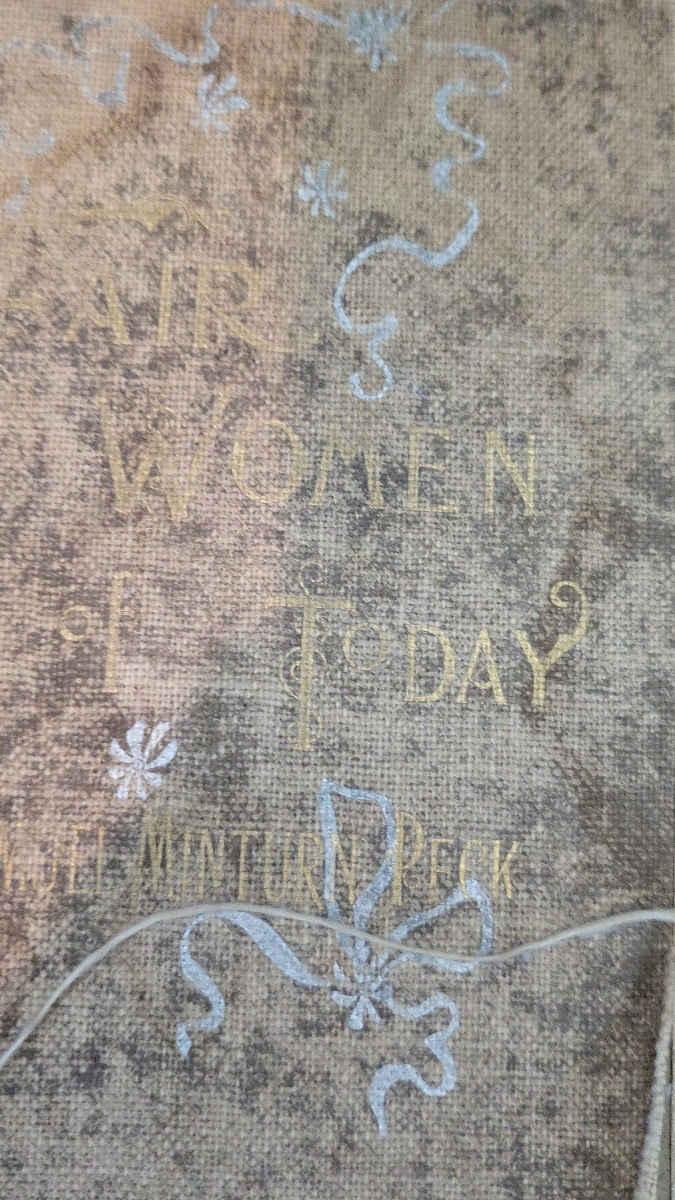 FAIR
WOMEN
OF TODAY
MINTURN PECK